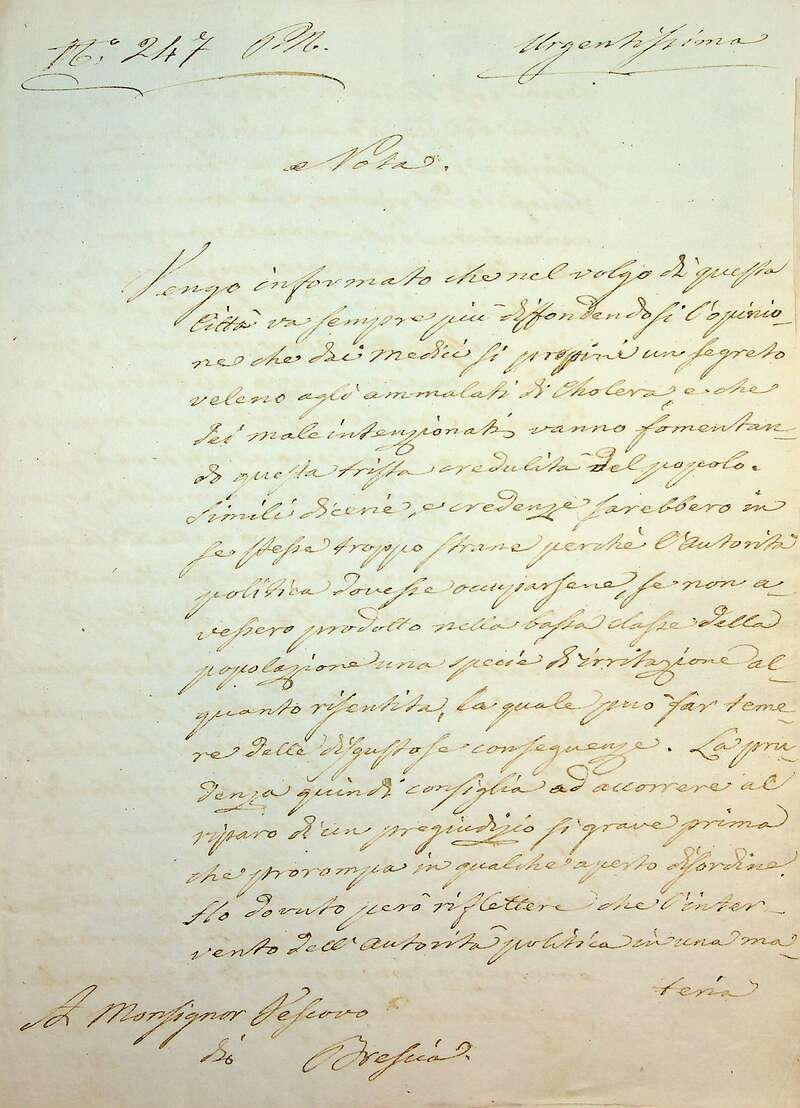 N.º 247 P.N. Urgentissima
Nota.
Vengo informato che nel volgo di questa
Città va sempre più diffondendosi l'opinio-
ne che dai medici si propini un segreto
veleno agli ammalati di Cholera, e che
dei male intenzionati vanno fomentan-
do questa trista credulità del popolo.
Simili dicerie, e credenze sarebbero in
se stesse troppo strane perchè l'autorità
politica dovesse occuparsene, se non a-
vessero prodotto nella bassa classe della
popolazione una specie di irritazione al-
quanto risentita, la quale può far teme-
re delle disgustose conseguenze. La pru-
denza quindi consiglia ad accorrere al
riparo di un pregiudizio si grave prima
che prorompa in qualche aperto disordine.
Ho dovuto però riflettere che l'inter-
vento dell'autorità politica in una ma-
teria
A Monsignor Vescovo
di Brescia.